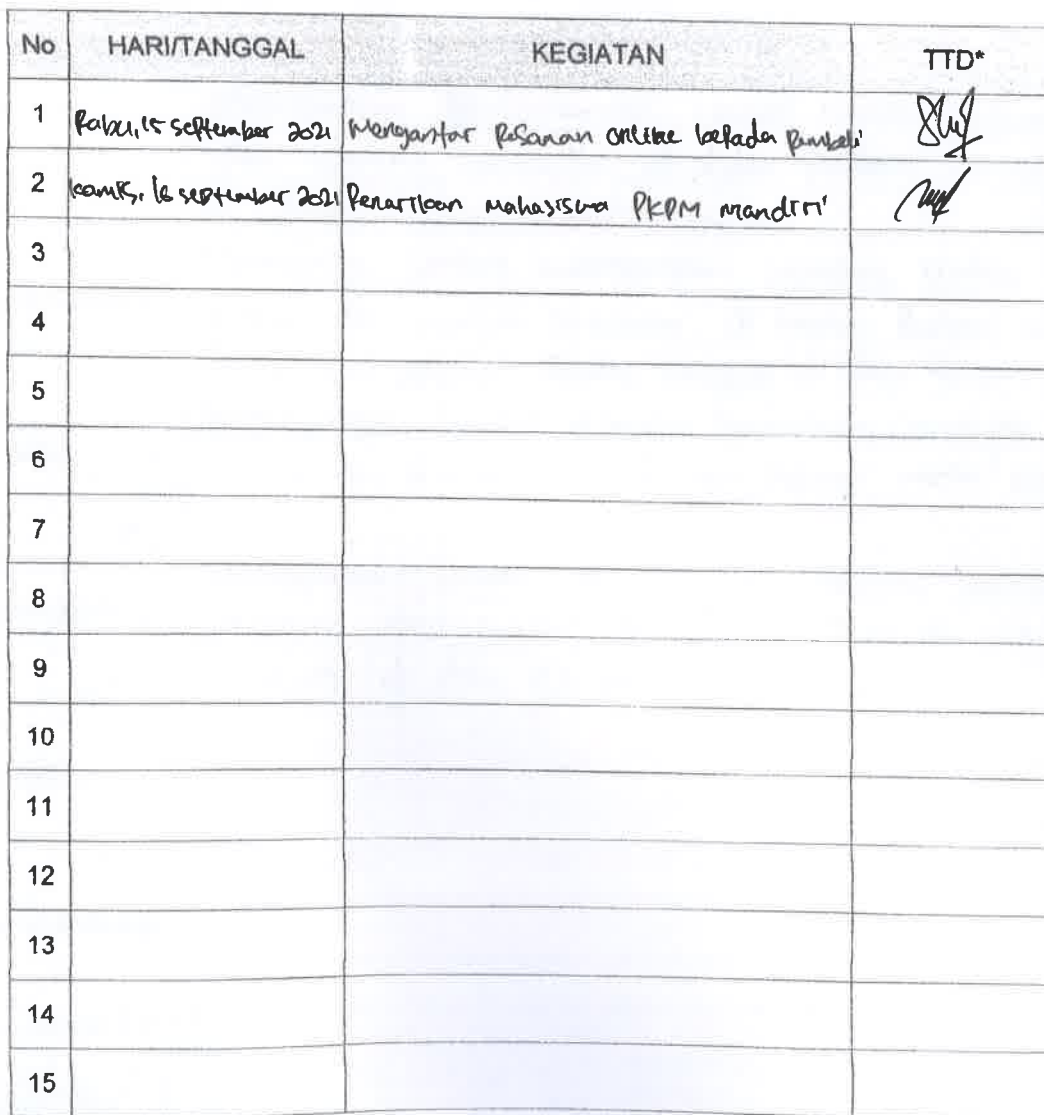 No HARI/TANGGAL KEGIATAN TTD*
1 Rabu, 15 september 2021 Mengantar Pesanan online kepada Pembeli
2 kamis, 16 september 2021 Penarikan mahasiswa PKPM mandiri
3
4
5
6
7
8
9
10
11
12
13
14
15